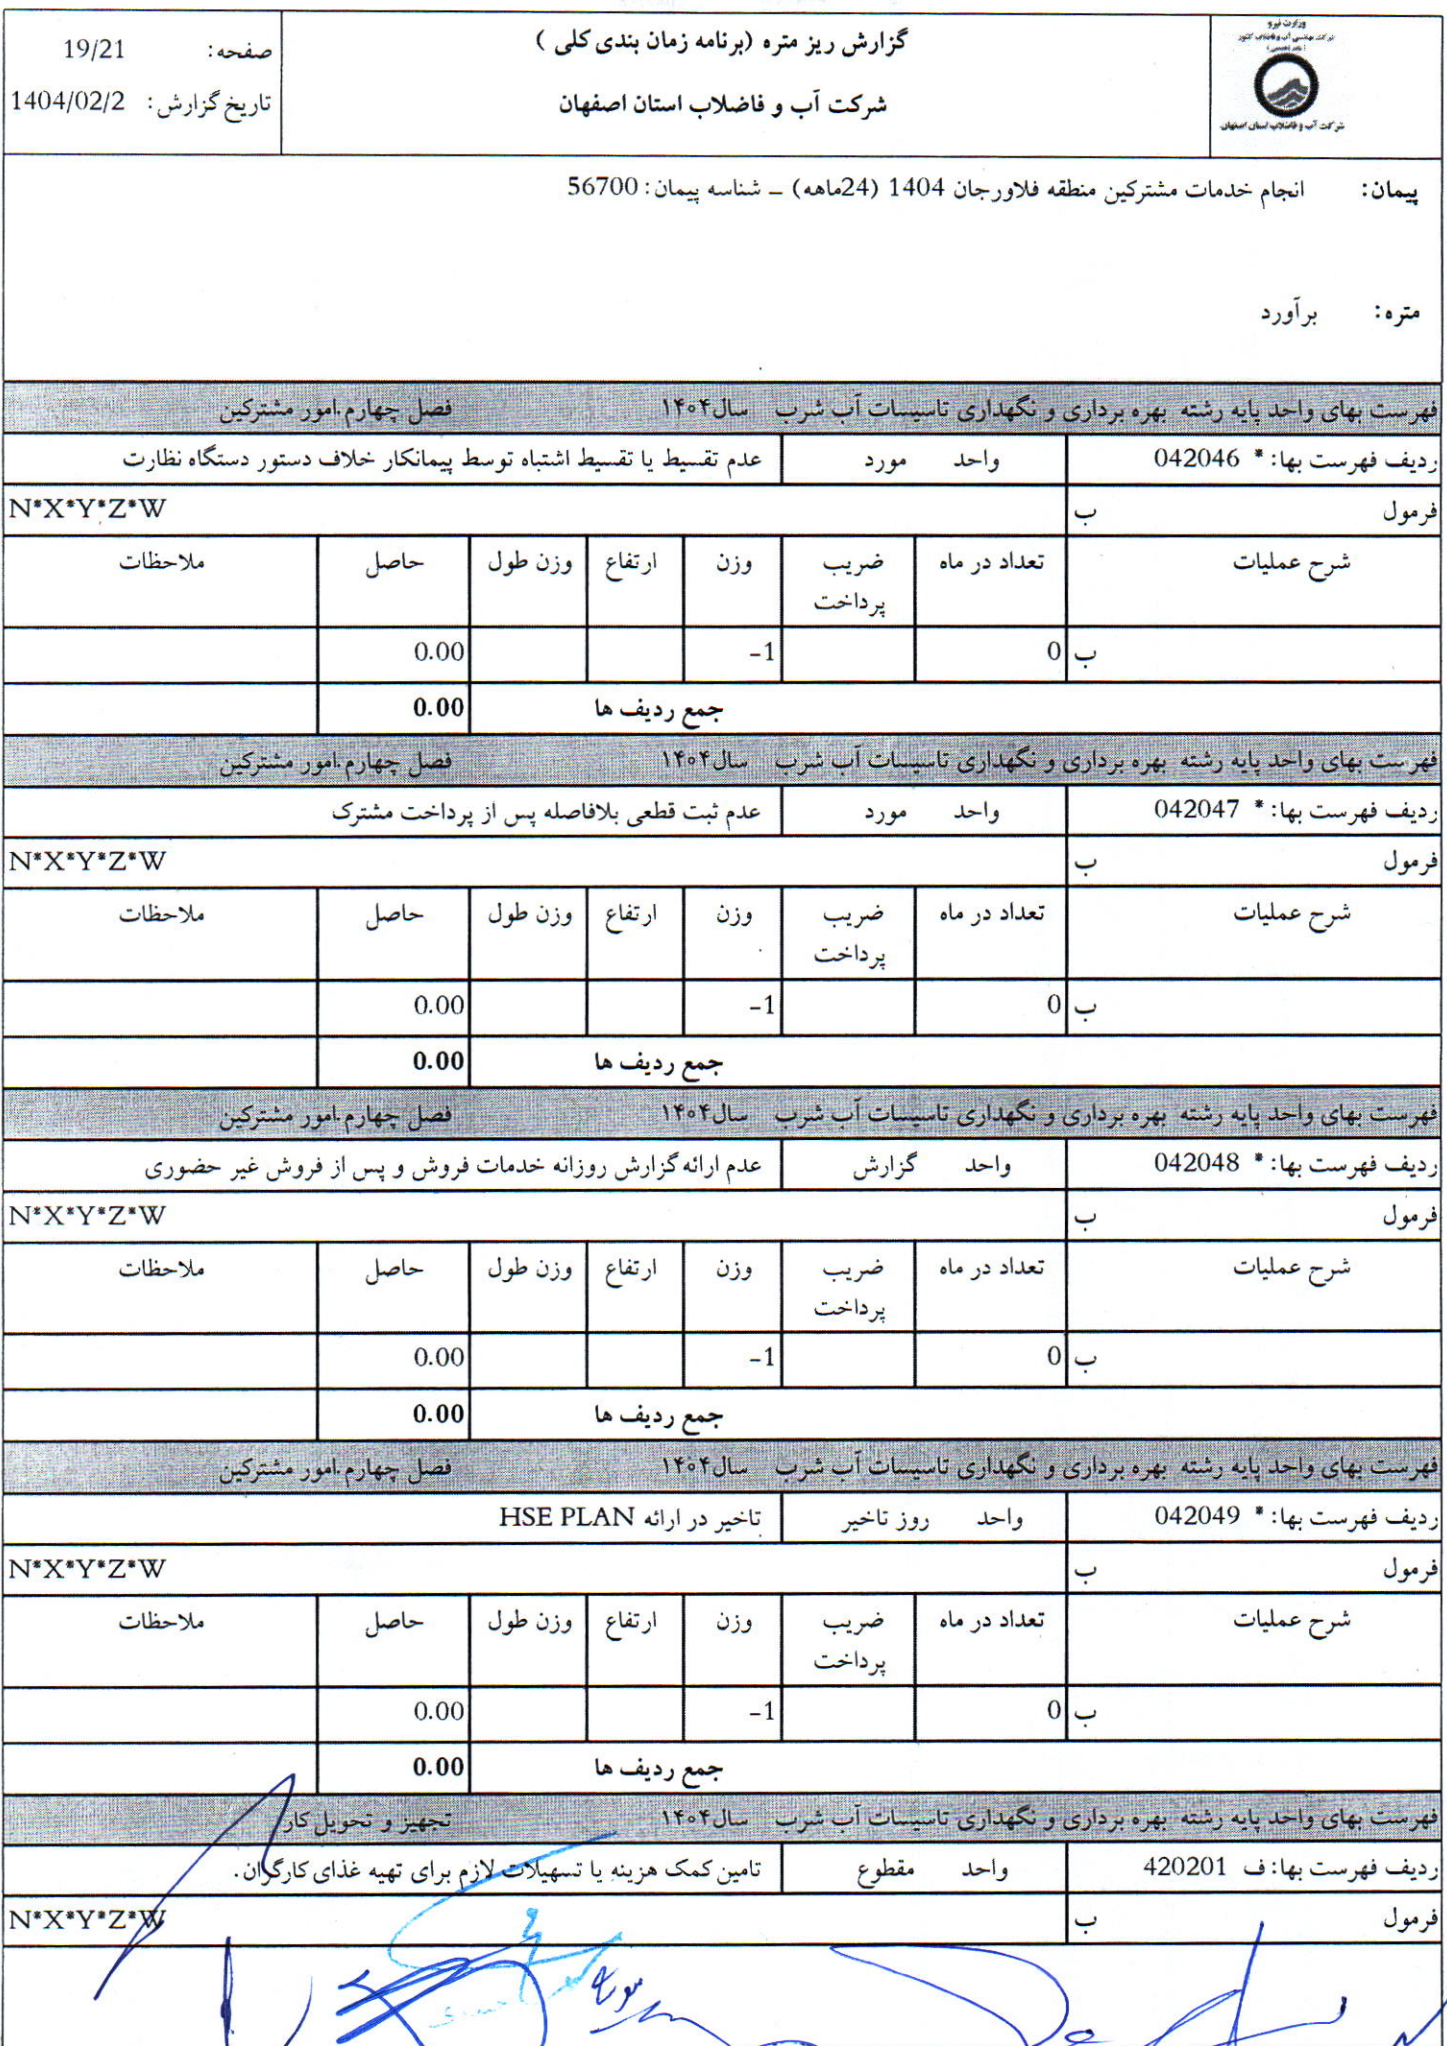 وزارت نیرو
شرکت مهندسی آب و فاضلاب کشور
شرکت آب و فاضلاب استان اصفهان
گزارش ریز متره (برنامه زمان بندی کلی )
شرکت آب و فاضلاب استان اصفهان
صفحه: 19/21
تاریخ گزارش: 1404/02/2
پیمان: انجام خدمات مشترکین منطقه فلاورجان 1404 (24ماهه) – شناسه پیمان: 56700
متره: برآورد
فهرست بهای واحد پایه رشته بهره برداری و نگهداری تاسیسات آب شرب سال۱۴۰۴ فصل چهارم.امور مشترکین
ردیف فهرست بها: * 042046 واحد مورد عدم تقسیط یا تقسیط اشتباه توسط پیمانکار خلاف دستور دستگاه نظارت
فرمول ب N*X*Y*Z*W
شرح عملیات تعداد در ماه ضریب پرداخت وزن ارتفاع وزن طول حاصل ملاحظات
ب 0 -1 0.00
جمع ردیف ها 0.00
فهرست بهای واحد پایه رشته بهره برداری و نگهداری تاسیسات آب شرب سال۱۴۰۴ فصل چهارم.امور مشترکین
ردیف فهرست بها: * 042047 واحد مورد عدم ثبت قطعی بلافاصله پس از پرداخت مشترک
فرمول ب N*X*Y*Z*W
شرح عملیات تعداد در ماه ضریب پرداخت وزن ارتفاع وزن طول حاصل ملاحظات
ب 0 -1 0.00
جمع ردیف ها 0.00
فهرست بهای واحد پایه رشته بهره برداری و نگهداری تاسیسات آب شرب سال۱۴۰۴ فصل چهارم.امور مشترکین
ردیف فهرست بها: * 042048 واحد گزارش عدم ارائه گزارش روزانه خدمات فروش و پس از فروش غیر حضوری
فرمول ب N*X*Y*Z*W
شرح عملیات تعداد در ماه ضریب پرداخت وزن ارتفاع وزن طول حاصل ملاحظات
ب 0 -1 0.00
جمع ردیف ها 0.00
فهرست بهای واحد پایه رشته بهره برداری و نگهداری تاسیسات آب شرب سال۱۴۰۴ فصل چهارم.امور مشترکین
ردیف فهرست بها: * 042049 واحد روز تاخیر تاخیر در ارائه HSE PLAN
فرمول ب N*X*Y*Z*W
شرح عملیات تعداد در ماه ضریب پرداخت وزن ارتفاع وزن طول حاصل ملاحظات
ب 0 -1 0.00
جمع ردیف ها 0.00
فهرست بهای واحد پایه رشته بهره برداری و نگهداری تاسیسات آب شرب سال۱۴۰۴ تجهیز و تحویل کار
ردیف فهرست بها: ف 420201 واحد مقطوع تامین کمک هزینه یا تسهیلات لازم برای تهیه غذای کارگران.
فرمول ب N*X*Y*Z*W